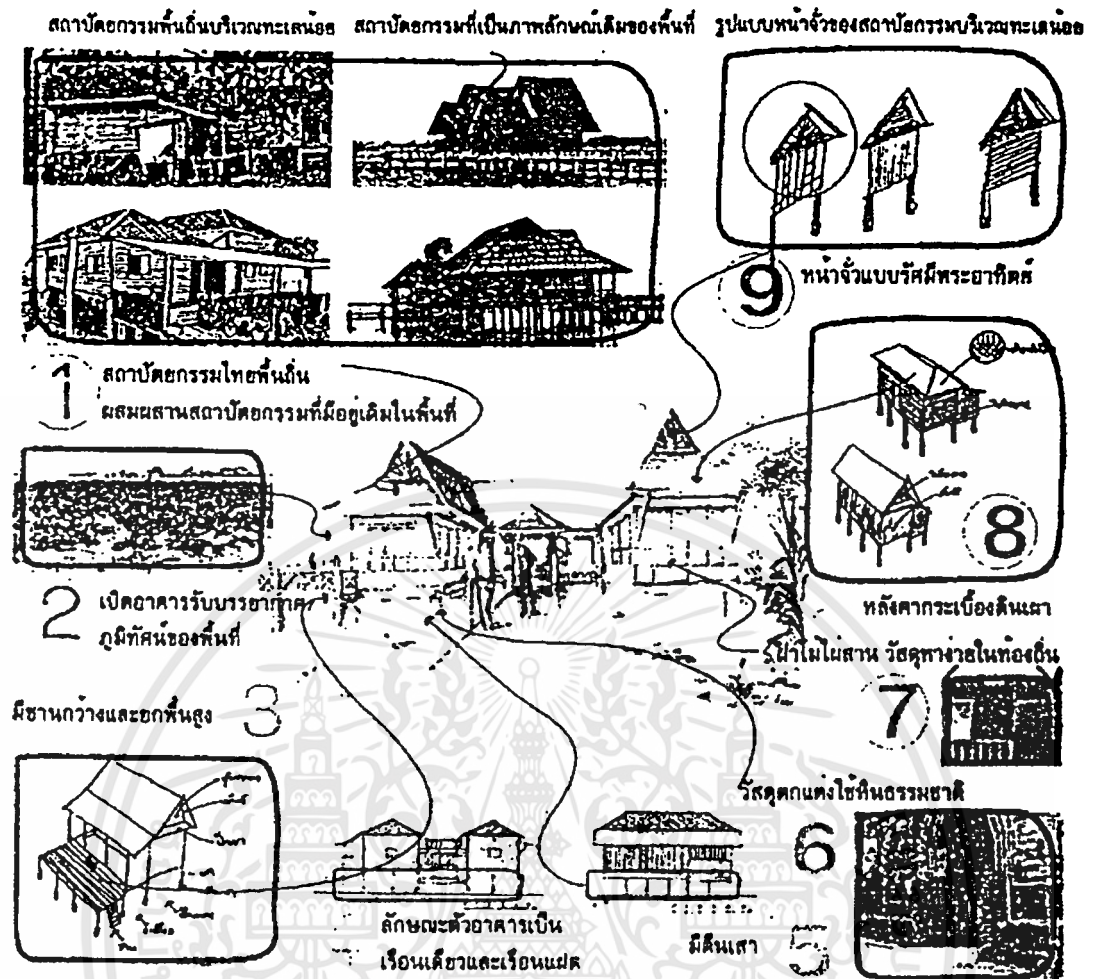 สถาปัตยกรรมพื้นถิ่นบริเวณทะเลน้อย
สถาปัตยกรรมที่เป็นภาพลักษณ์เดิมของพื้นที่
รูปแบบหน้าจั่วของสถาปัตยกรรมบริเวณทะเลน้อย
1 สถาปัตยกรรมไทยพื้นถิ่น
ผสมผสานสถาปัตยกรรมที่มีอยู่เดิมในพื้นที่
9 หน้าจั่วแบบรัศมีพระอาทิตย์
2 เปิดอาคารรับบรรยากาศ
ภูมิทัศน์ของพื้นที่
8
หลังคากระเบื้องดินเผา
ฝาไม้ไผ่สาน วัสดุหาง่ายในท้องถิ่น
7
มีชานกว้างและยกพื้นสูง 3
วัสดุตกแต่งใช้หินธรรมชาติ
6
ลักษณะตัวอาคารเป็น
เรือนเดี่ยวและเรือนแฝด
มีตีนเสา 5